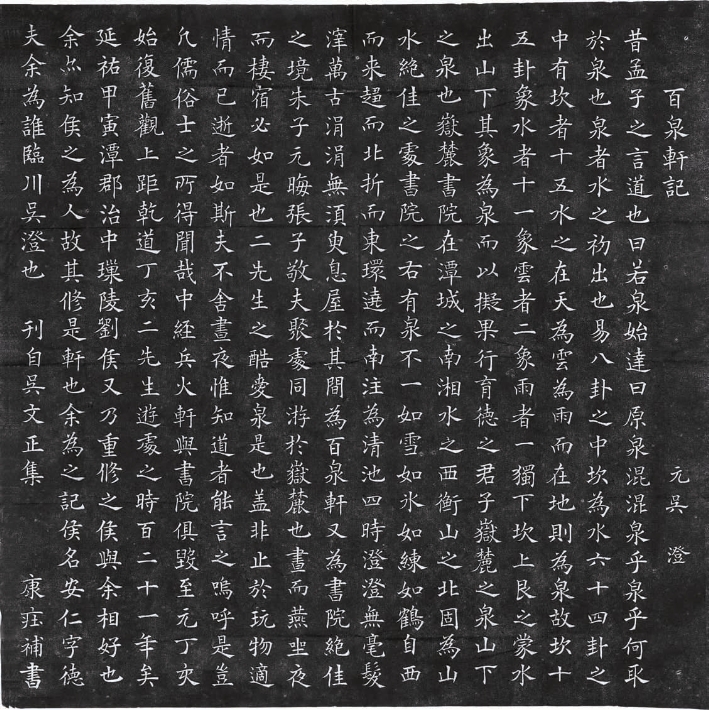 百泉軒記　元吳澄
昔孟子之言道也曰若泉始達曰原泉混混泉乎泉乎何取
於泉也泉者水之初出也易八卦之中坎為水六十四卦之
中有坎者十五水之在天為雲為雨而在地則為泉故坎十
五卦象水者十一象雲者二象雨者一獨下坎上艮之蒙水
出山下其象為泉而以擬果行育德之君子嶽麓之泉山下
之泉也嶽麓書院在潭城之南湘水之西衡山之北固為山
水絶佳之處書院之右有泉不一如雪如氷如練如鶴自西
而来趨而北折而東環遶而南注為清池四時澄澄無毫髮
滓萬古涓涓無須臾息屋於其間為百泉軒又為書院絶佳
之境朱子元晦張子敬夫聚處同游於嶽麓也晝而燕坐夜
而棲宿必如是也二先生之酷愛泉是也盖非止於玩物適
情而已逝者如斯夫不舍晝夜惟知道者能言之嗚呼是豈
凡儒俗士之所得聞哉中經兵火軒與書院俱毀至元丁亥
始復舊觀上距乾道丁亥二先生遊處之時百二十一年矣
延祐甲寅潭郡治中陵劉侯又乃重修之侯與余相好也
余亦知侯之為人故其修是軒也余為之記侯名安仁字德
夫余為誰臨川吳澄也　刊自吳文正集　康補書